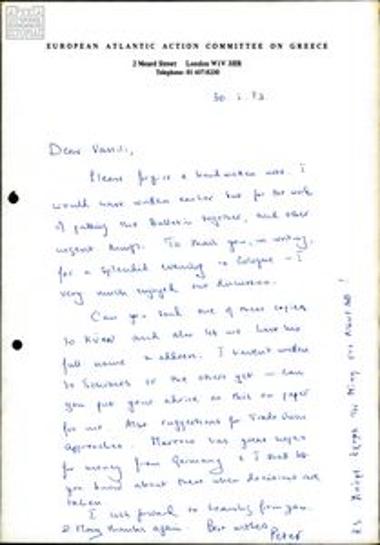 EUROPEAN ATLANTIC ACTION COMMITTEE ON GREECE
2 Meard Street London W1V 3HR
Telephone: 01
30. 1. 73.
Dear Vassili,
Please forgive a handwritten note. I
would have written earlier but for the work
of putting the Bulletin together, and other
urgent things. To thank you, in writing,
for a splendid evening in Cologne - I
very much enjoyed our discussion.
Can you send one of these copies
to and also let me have his
full name & address. I haven't written
to or the others yet - can
you put your advice on this on paper
for me. Also suggestions for Trade Union
approaches. has great hopes
for money from Germany & I shall let
you know about them when decisions are
taken
I look forward to hearing from you
& Many thanks again. Best wishes,
Peter